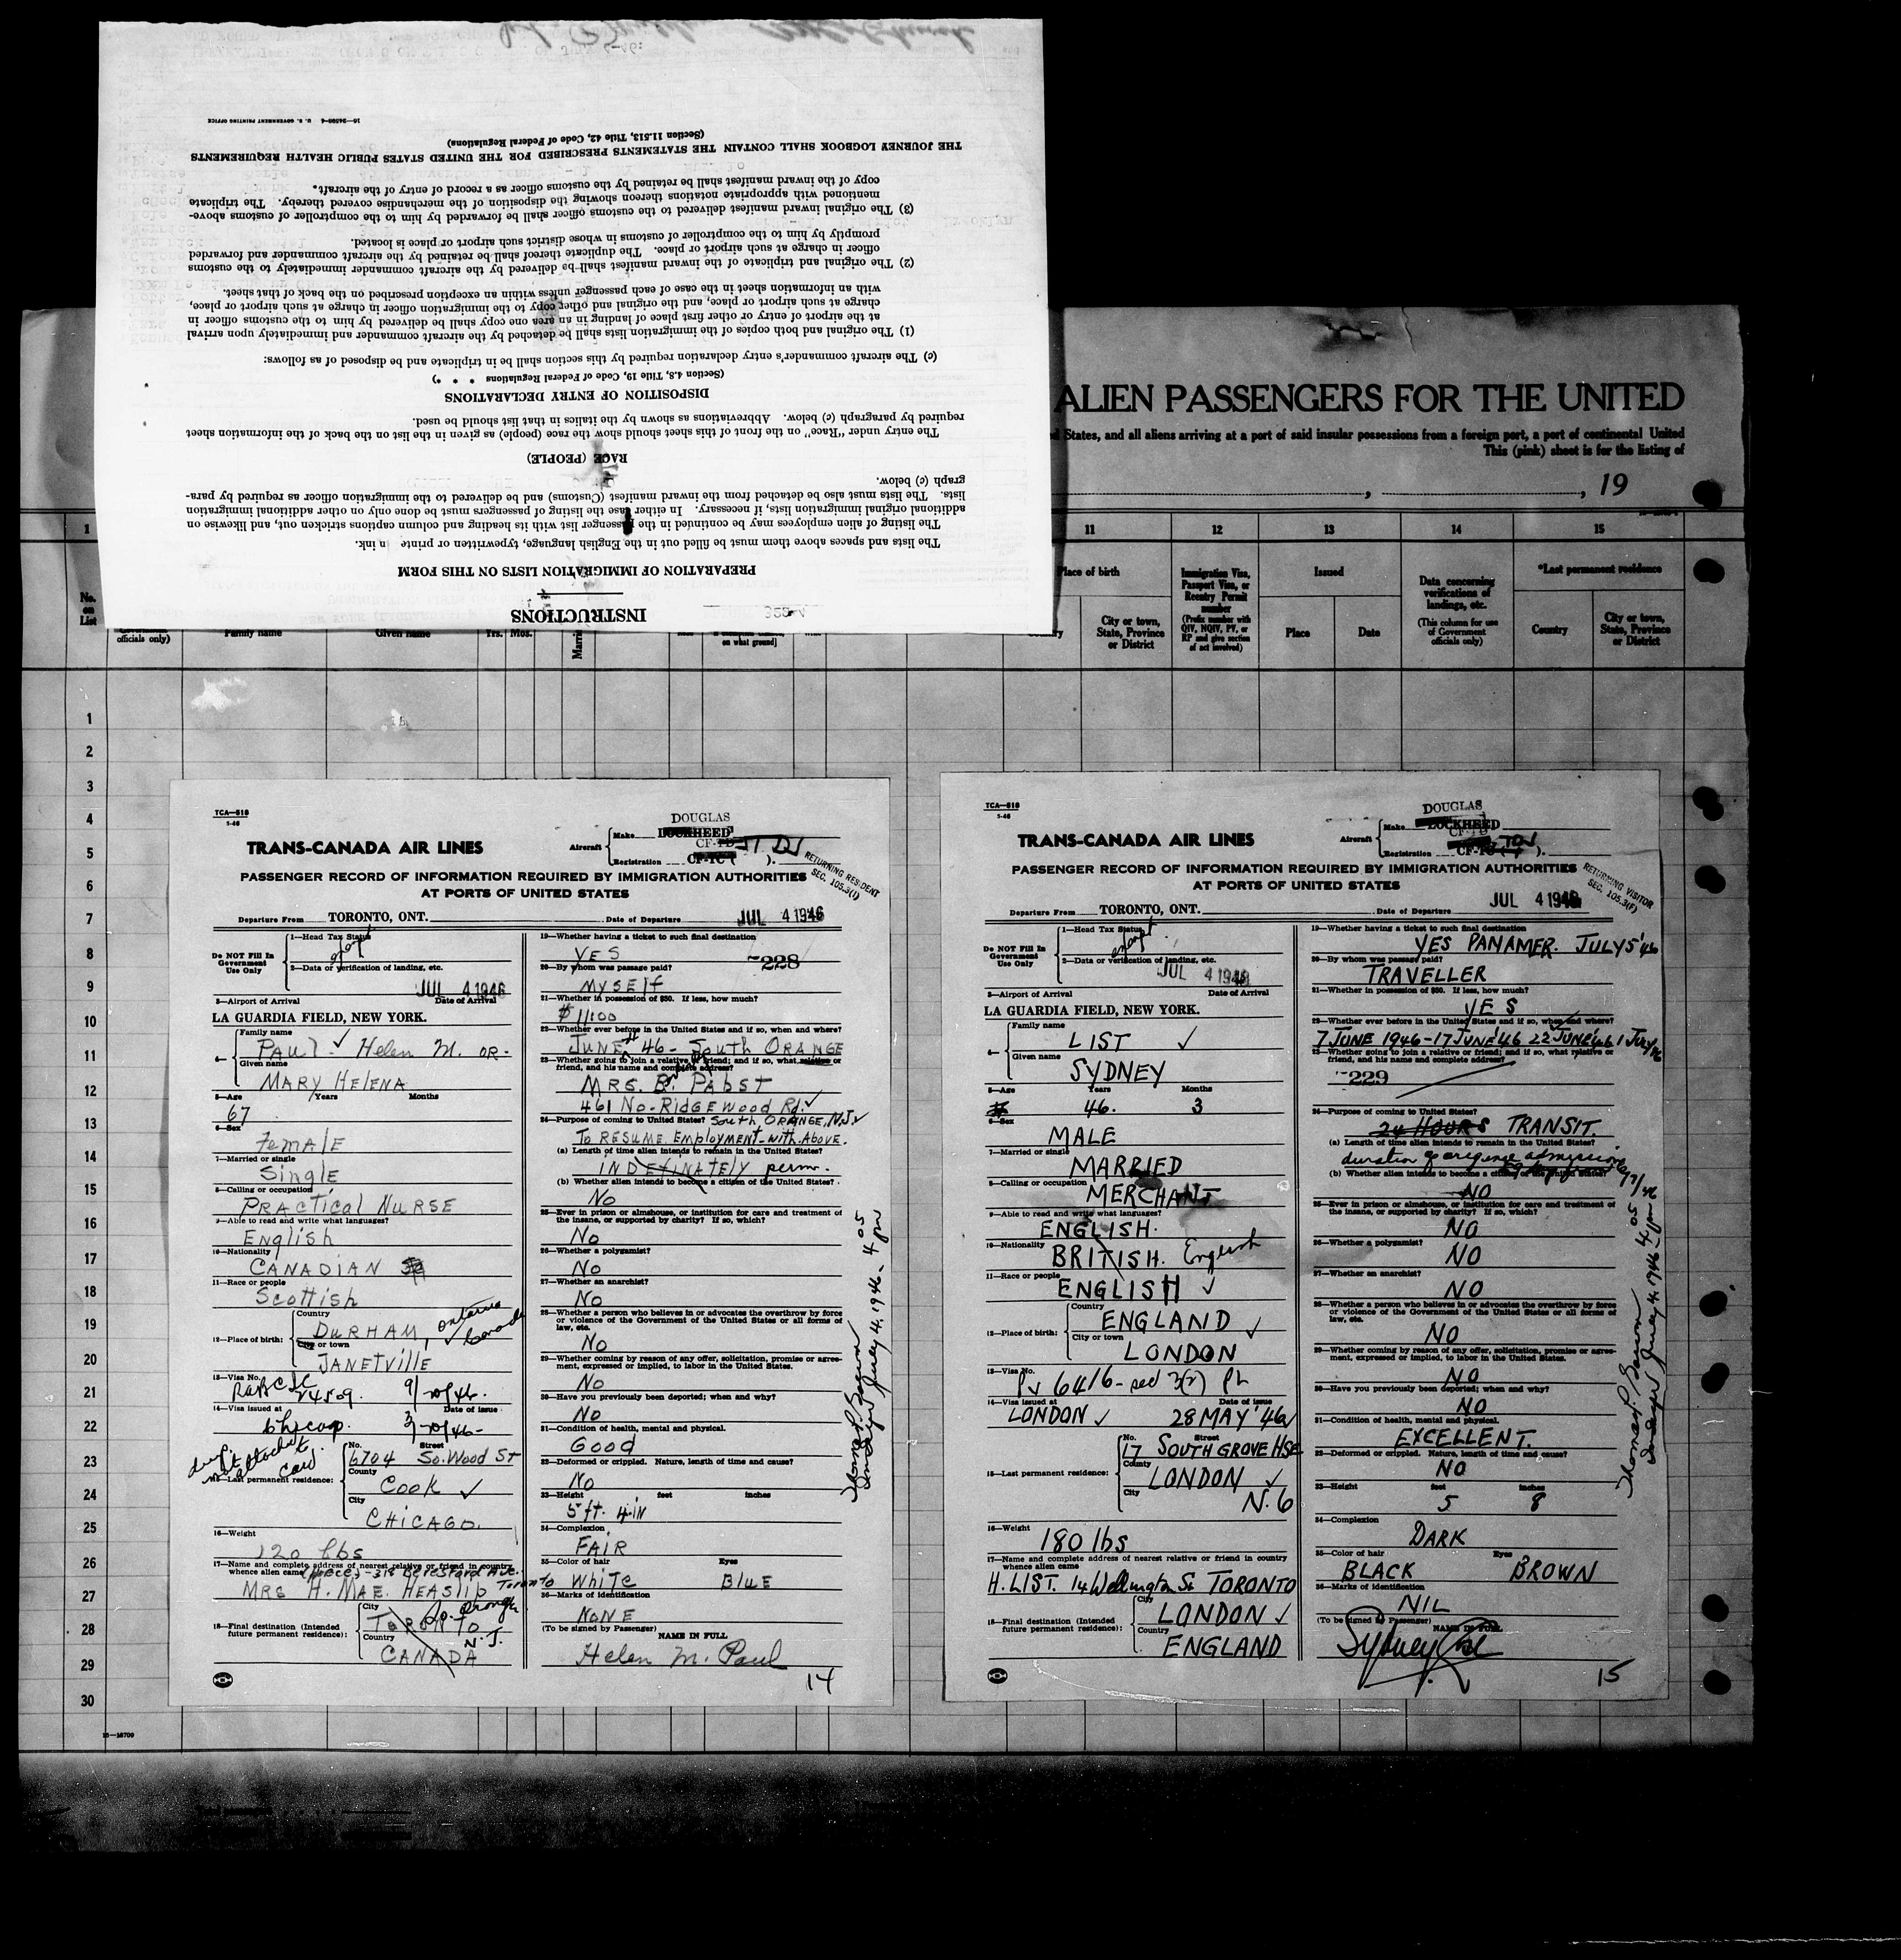 INSTRUCTIONS
PREPARATION OF IMMIGRATION LISTS ON THIS FORM
The lists and spaces above them must be filled out in the English language, typewritten or printe n ink.
The listing of alien employees may be continued in the passenger list with its heading and column captions stricken out, and likewise on
additional original immigration lists, if necessary. In either case the listing of passengers must be done only on other additional immigration
lists. The lists must also be detached from the inward manifest (Customs) and be delivered to the immigration officer as required by para-
graph (c) below.
RACE (PEOPLE)
The entry under "Race" on the front of this sheet should show the race (people) as given in the list on the back of the information sheet
required by paragraph (c) below. Abbreviations as shown by the italics in that list should be used.
DISPOSITION OF ENTRY DECLARATIONS
(Section 4.8, Title 19, Code of Federal Regulations * * *)
(c) The aircraft commander's entry declaration required by this section shall be in triplicate and be disposed of as follows:
(1) The original and both copies of the immigration lists shall be detached by the aircraft commander and immediately upon arrival
at the airport of entry or other first place of landing in an area one copy shall be delivered by him to the customs officer in
charge at such airport or place, and the original and other copy to the immigration officer in charge at such airport or place,
with an information sheet in the case of each passenger unless within an exception prescribed on the back of that sheet.
(2) The original and triplicate of the inward manifest shall be delivered by the aircraft commander immediately to the customs
officer in charge at such airport or place. The duplicate thereof shall be retained by the aircraft commander and forwarded
promptly by him to the comptroller of customs in whose district such airport or place is located.
(3) The original inward manifest delivered to the customs officer shall be forwarded by him to the comptroller of customs above-
mentioned with appropriate notations thereon showing the disposition of the merchandise covered thereby. The triplicate
copy of the inward manifest shall be retained by the customs officer as a record of entry of the aircraft.
THE JOURNEY LOGBOOK SHALL CONTAIN THE STATEMENTS PRESCRIBED FOR THE UNITED STATES PUBLIC HEALTH REQUIREMENTS
(Section 11.513, Title 42, Code of Federal Regulations)
U. S. GOVERNMENT PRINTING OFFICE
ALIEN PASSENGERS FOR THE UNITED
States, and all aliens arriving at a port of said insular possessions from a foreign port, a port of continental United
This (pink) sheet is for the listing of
, , 19
1 11 12 13 14 15
No. on List
officials only) Family name Given name Yrs. Mos. on what ground]
Place of birth
City or town, State, Province or District
Immigration Visa, Passport Visa, or Reentry Permit number
(Prefix number with QIV, NQIV, PV, or RP and give section of act involved)
Issued
Place Date
Data concerning verifications of landings, etc.
(This column for use of Government officials only)
*Last permanent residence
Country City or town, State, Province or District
1
2
3
4
5
6
7
8
9
10
11
12
13
14
15
16
17
18
19
20
21
22
23
24
25
26
27
28
29
30
TCA—518
1-46
TRANS-CANADA AIR LINES
DOUGLAS
Aircraft Make LOCKHEED
Registration CF-TC( ).
RETURNING RESIDENT
SEC. 105.3(I)
PASSENGER RECORD OF INFORMATION REQUIRED BY IMMIGRATION AUTHORITIES
AT PORTS OF UNITED STATES
Departure From TORONTO, ONT. Date of Departure JUL 4 1946
Do NOT Fill In Government Use Only
1—Head Tax Status
2—Data or verification of landing, etc.
JUL 4 1946
3—Airport of Arrival Date of Arrival
LA GUARDIA FIELD, NEW YORK.
4— Family name
PAUL ✓ Helen M. OR-
Given name
MARY HELENA
5—Age Years Months
67
6—Sex
FemAlE
7—Married or single
Single
8—Calling or occupation
PRACTICAL NURSE
9—Able to read and write what languages?
English
10—Nationality
CANADIAN
11—Race or people
Scottish
12—Place of birth: Country
DURHAM, Ontario Canada
City or town
JANETVILLE
13—Visa No.
14—Visa issued at Date of issue
15—Last permanent residence: No. Street
6704 So. Wood St
County
Cook ✓
City
CHICAGO.
16—Weight
120 lbs
17—Name and complete address of nearest relative or friend in country
whence alien came (NIECE) - Beresford Ave.
MRS H. MAE. HEASLIP Toronto
18—Final destination (Intended future permanent residence): City
TORONTO So. Orange
Country N.J.
CANADA
19—Whether having a ticket to such final destination
YES
228
20—By whom was passage paid?
MYSElf
21—Whether in possession of $50. If less, how much?
22—Whether ever before in the United States and if so, when and where?
JUNE 46 - South ORANGE
23—Whether going to join a relative or friend; and if so, what relative or
friend, and his name and complete address?
MRS. B. PABST
461 No. RIDGEWOOD Rd. ✓
24—Purpose of coming to United States? South ORANGE, N.J. ✓
To RESUME EmployMENT with Above.
(a) Length of time alien intends to remain in the United States?
INDEFINATELY perm.
(b) Whether alien intends to become a citizen of the United States?
No
25—Ever in prison or almshouse, or institution for care and treatment of
the insane, or supported by charity? If so, which?
No
26—Whether a polygamist?
No
27—Whether an anarchist?
No
28—Whether a person who believes in or advocates the overthrow by force
or violence of the Government of the United States or all forms of
law, etc.
No
29—Whether coming by reason of any offer, solicitation, promise or agree-
ment, expressed or implied, to labor in the United States.
No
30—Have you previously been deported; when and why?
No
31—Condition of health, mental and physical.
Good
32—Deformed or crippled. Nature, length of time and cause?
No
33—Height feet inches
5 ft. 4 IN
34—Complexion
FAIR
35—Color of hair Eyes
White BluE
36—Marks of identification
NONE
(To be signed by Passenger) NAME IN FULL
Helen M. Paul
14
TCA—518
1-46
TRANS-CANADA AIR LINES
DOUGLAS
Aircraft Make LOCKHEED
Registration
RETURNING VISITOR
SEC. 105.3(F)
PASSENGER RECORD OF INFORMATION REQUIRED BY IMMIGRATION AUTHORITIES
AT PORTS OF UNITED STATES
Departure From TORONTO, ONT. Date of Departure JUL 4 1946
Do NOT Fill In Government Use Only
1—Head Tax Status
exempt
2—Data or verification of landing, etc.
JUL 4 1946
3—Airport of Arrival Date of Arrival
LA GUARDIA FIELD, NEW YORK.
4— Family name
LIST ✓
Given name
SYDNEY
5—Age Years Months
46. 3
6—Sex
MALE
7—Married or single
MARRIED
8—Calling or occupation
MERCHANT
9—Able to read and write what languages?
ENGLISH.
10—Nationality
BRITISH. English
11—Race or people
ENGLISH ✓
12—Place of birth: Country
ENGLAND ✓
City or town
LONDON
13—Visa No.
PV 6416 - sec 3(2)
14—Visa issued at Date of issue
LONDON ✓ 28 MAY '46
15—Last permanent residence: No. Street
17 SOUTH GROVE HSE
County
LONDON ✓
City
N. 6
16—Weight
180 lbs
17—Name and complete address of nearest relative or friend in country
whence alien came
H. LIST. 14 Wellington St TORONTO
18—Final destination (Intended future permanent residence): City
LONDON ✓
Country
ENGLAND
19—Whether having a ticket to such final destination
YES PANAMER. JULY 5 '46
20—By whom was passage paid?
TRAVELLER
21—Whether in possession of $50. If less, how much?
YES
22—Whether ever before in the United States and if so, when and where?
7 JUNE 1946 - 17 JUNE '46 22 JUNE '46 1 July 46
23—Whether going to join a relative or friend; and if so, what relative or
friend, and his name and complete address?
229
24—Purpose of coming to United States?
24 HOURS TRANSIT.
(a) Length of time alien intends to remain in the United States?
duration of original admission
(b) Whether alien intends to become a citizen of the United States?
NO
25—Ever in prison or almshouse, or institution for care and treatment of
the insane, or supported by charity? If so, which?
NO
26—Whether a polygamist?
NO
27—Whether an anarchist?
NO
28—Whether a person who believes in or advocates the overthrow by force
or violence of the Government of the United States or all forms of
law, etc.
NO
29—Whether coming by reason of any offer, solicitation, promise or agree-
ment, expressed or implied, to labor in the United States.
NO
30—Have you previously been deported; when and why?
NO
31—Condition of health, mental and physical.
EXCELLENT.
32—Deformed or crippled. Nature, length of time and cause?
NO
33—Height feet inches
5 8
34—Complexion
DARK
35—Color of hair Eyes
BLACK BROWN
36—Marks of identification
NIL
(To be signed by Passenger) NAME IN FULL
Sydney List
15
16—16709